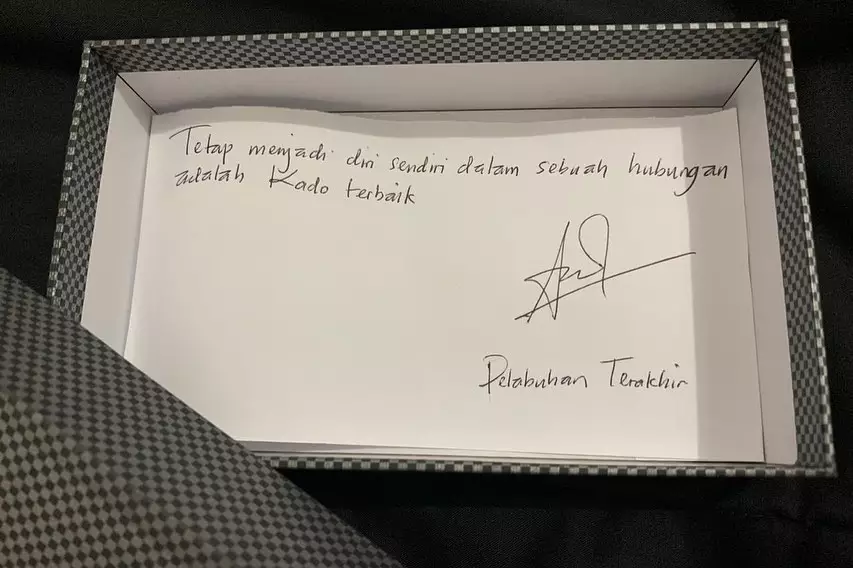 Tetap menjadi diri sendiri dalam sebuah hubungan
adalah Kado terbaik
Pelabuhan Terakhir